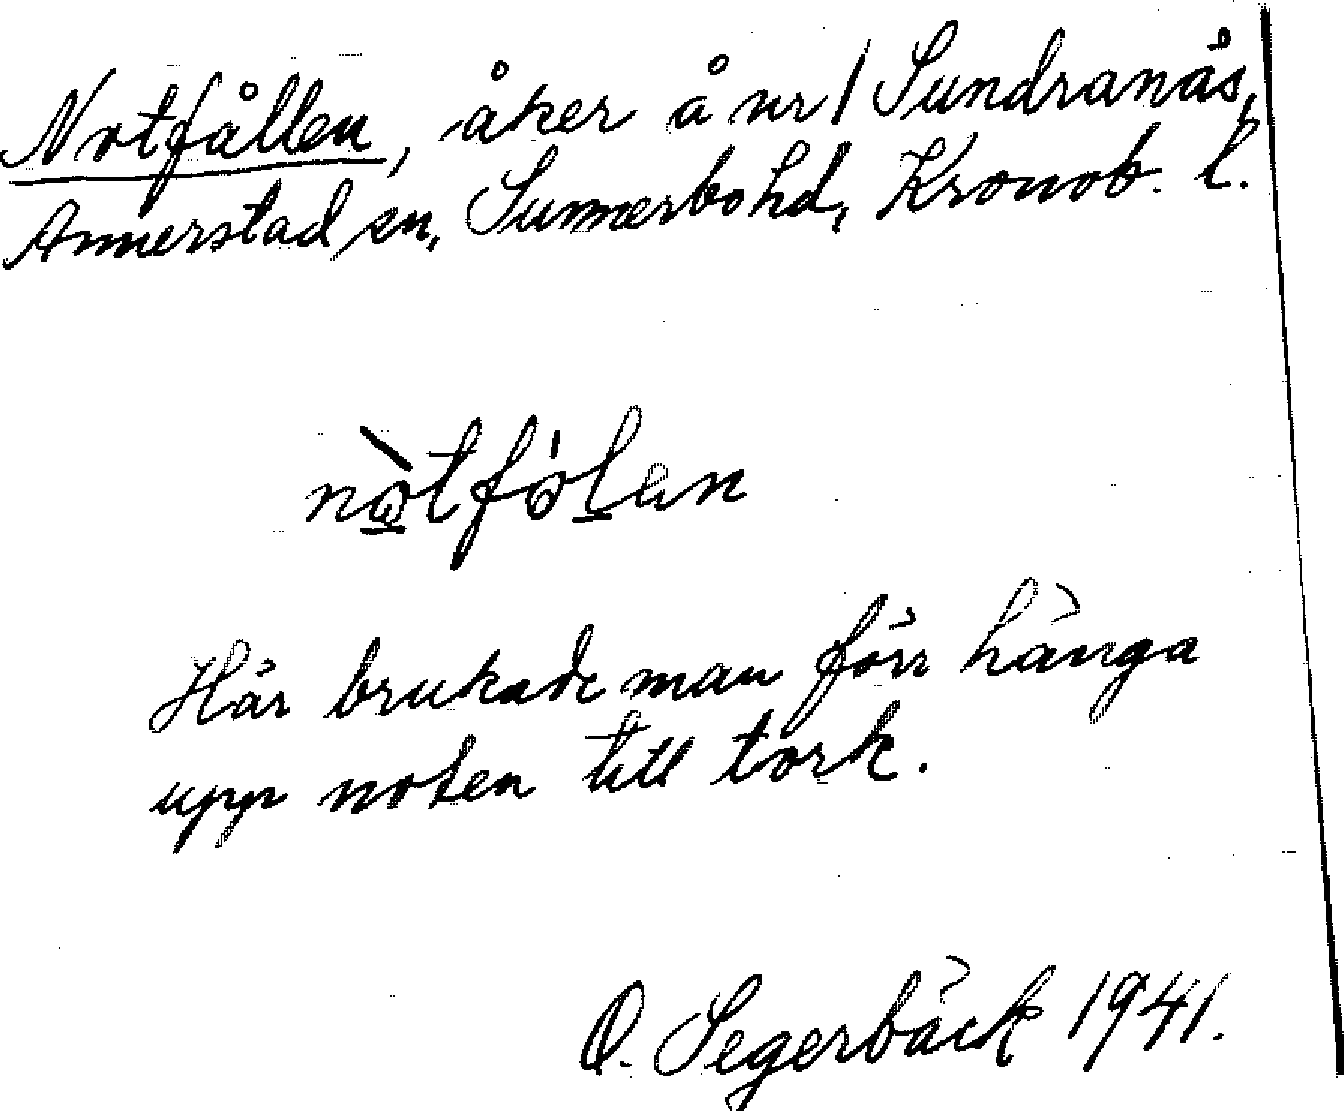 Notfållen, åker å nr 1 Sundranäs,
Annerstad sn, Sunnerbo hd, Kronob. l.
nòtfólan
Här brukade man förr hänga
upp noten till tork.
O. Segerbäck 1941.